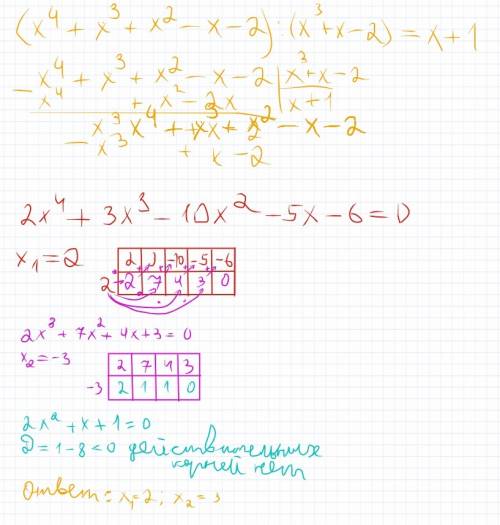 (x⁴ + x³ + x² - x - 2) : (x³ + x - 2) = x + 1
- x⁴ + x³ + x² - x - 2 | x³ + x - 2
x⁴ + x² - 2x | x + 1
x³ x⁴ + x³ + x² - x - 2
- x³ + x - 2
2x⁴ + 3x³ - 10x² - 5x - 6 = 0
x₁ = 2
2 3 -10 -5 -6
2 2 7 4 3 0
2x³ + 7x² + 4x + 3 = 0
x₂ = -3
2 7 4 3
-3 2 1 1 0
2x² + x + 1 = 0
D = 1 - 8 < 0 действительных
корней нет
Ответ: x₁ = 2; x₂ = 3